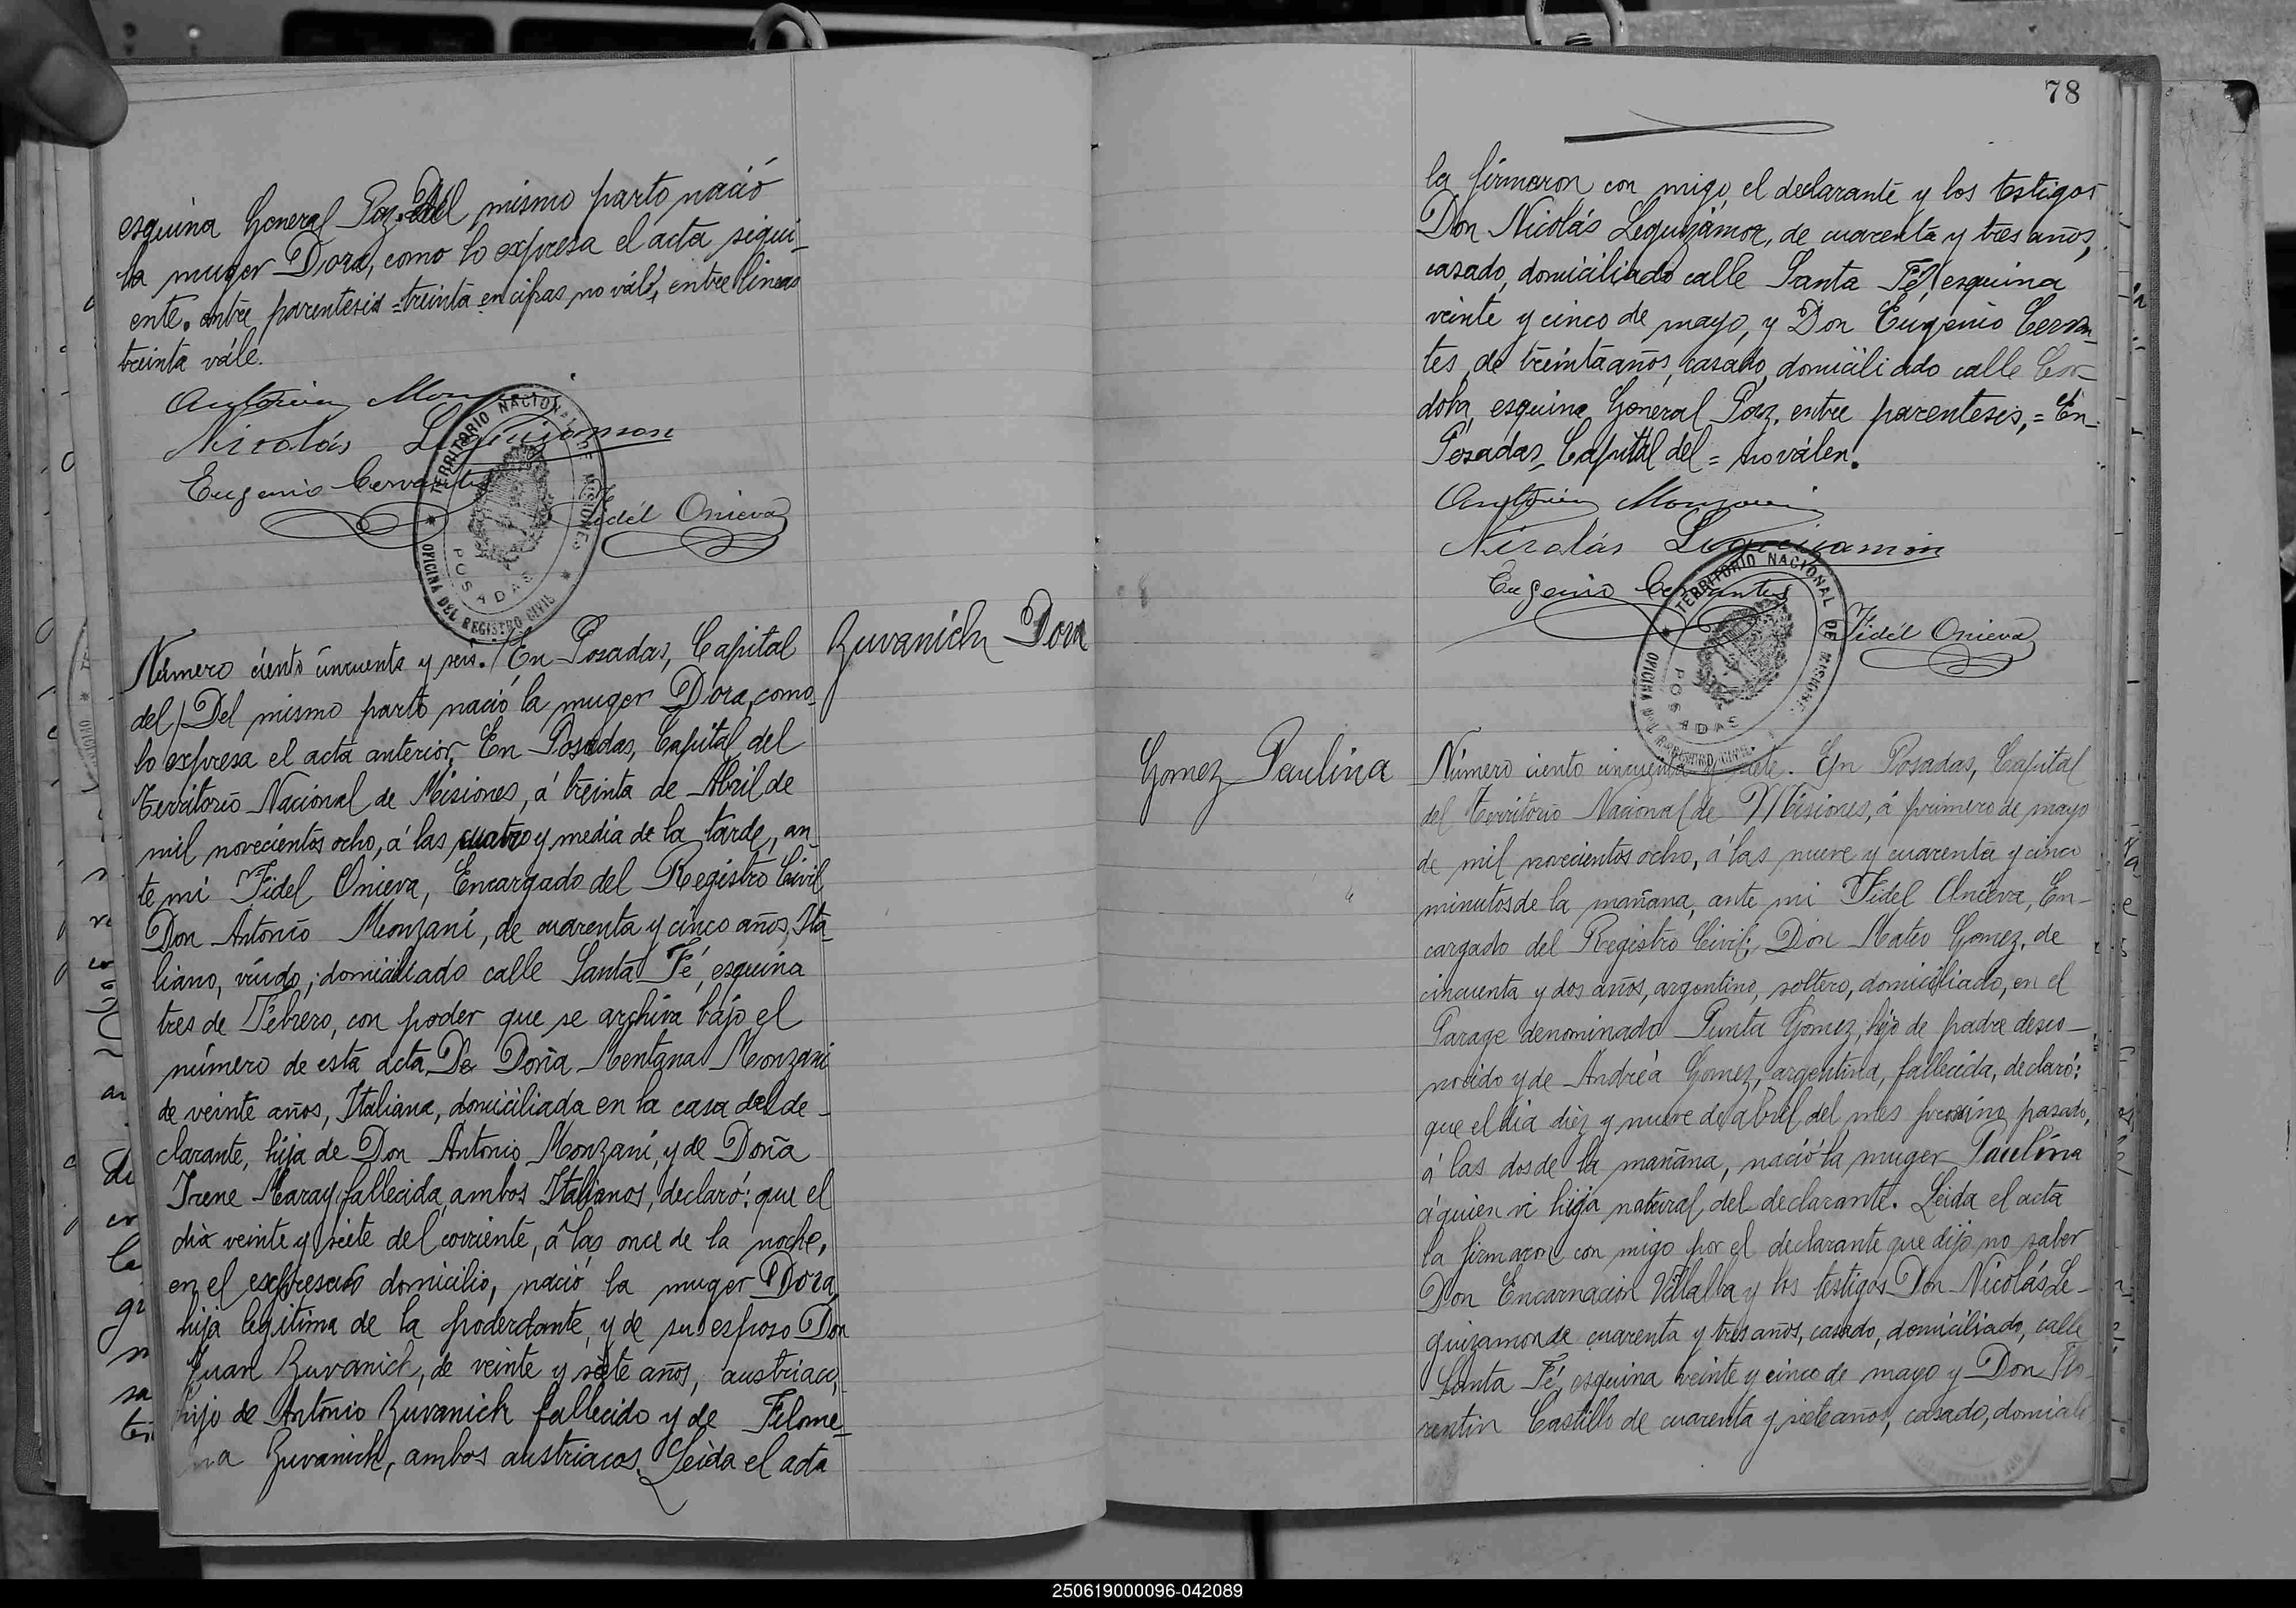 esquina General Paz. Del mismo parto nació
la muger Dora, como lo expresa el acta sigui-
ente. entre parentesis = treinta en cifras no vále, entre lineas
treinta vále.
Antonio Monzani
Nicolás Leguizamon
Eugenio Cervantes
Fidél Onieva
TERRITORIO NACIONAL DE MISIONES
OFICINA DEL REGISTRO CIVIL
POSADAS
Zuvanich Dora
Número ciento cincuenta y seis. (En Posadas, Capital
del) Del mismo parto nació la muger Dora, como
lo expresa el acta anterior, En Posadas, Capital del
Territorio Nacional de Misiones, á treinta de Abril de
mil novecientos ocho, á las cuatro y media de la tarde, an-
te mi Fidel Onieva, Encargado del Registro Civil
Don Antonio Monzani, de cuarenta y cinco años, Ita-
liano, viudo, domiciliado calle Santa Fé, esquina
tres de Febrero, con poder que se archiva bajo el
número de esta acta De Doña Mentana Monzani
de veinte años, Italiana, domiciliada en la casa del de-
clarante, hija de Don Antonio Monzani, y de Doña
Irene Maray, fallecida, ambos Italianos, declaró: que el
dia veinte y siete del corriente, á las once de la noche,
en el expresado domicilio, nació la muger Dora,
hija legitima de la poderdante, y de su esposo Don
Juan Zuvanich, de veinte y siete años, austriaco,
hijo de Antonio Zuvanich fallecido y de Filome-
na Zuvanich, ambos austriacos. Leida el acta
78
la firmaron con migo, el declarante y los testigos
Don Nicolás Leguizámon, de cuarenta y tres años,
casado, domiciliado calle Santa Fé, esquina
veinte y cinco de mayo, y Don Eugenio Cervan-
tes, de treinta años, casado, domiciliado calle Cor-
doba, esquina General Paz. entre parentesis, = En
Posadas, Capital del = no válen.
Antonio Monzani
Nicolás Leguizamon
Eugenio Cervantes
Fidél Onieva
TERRITORIO NACIONAL DE MISIONES
OFICINA DEL REGISTRO CIVIL
POSADAS
Gomez Paulina
Número ciento cincuenta y siete. En Posadas, Capital
del Territorio Nacional de Misiones, á primero de mayo
de mil novecientos ocho, á las nueve y cuarenta y cinco
minutos de la mañana, ante mi Fidel Onieva, En-
cargado del Registro Civil; Don Mateo Gomez, de
cincuenta y dos años, argentino, soltero, domiciliado, en el
Parage denominado Punta Gomez, hijo de padre desco-
nocido y de Andréa Gomez, argentina, fallecida, declaró:
que el dia diez y nueve de abril del mes proximo pasado,
á las dos de la mañana, nació la muger Paulina
á quien vi hija natural del declarante. Leida el acta
la firmaron con migo por el declarante que dijo no saber
Don Encarnacion Villalba y los testigos Don Nicolás Le-
guizamon de cuarenta y tres años, casado, domiciliado, calle
Santa Fé, esquina veinte y cinco de mayo y Don Flo-
rentin Castillo de cuarenta y siete años, casado, domicili
250619000096-042089